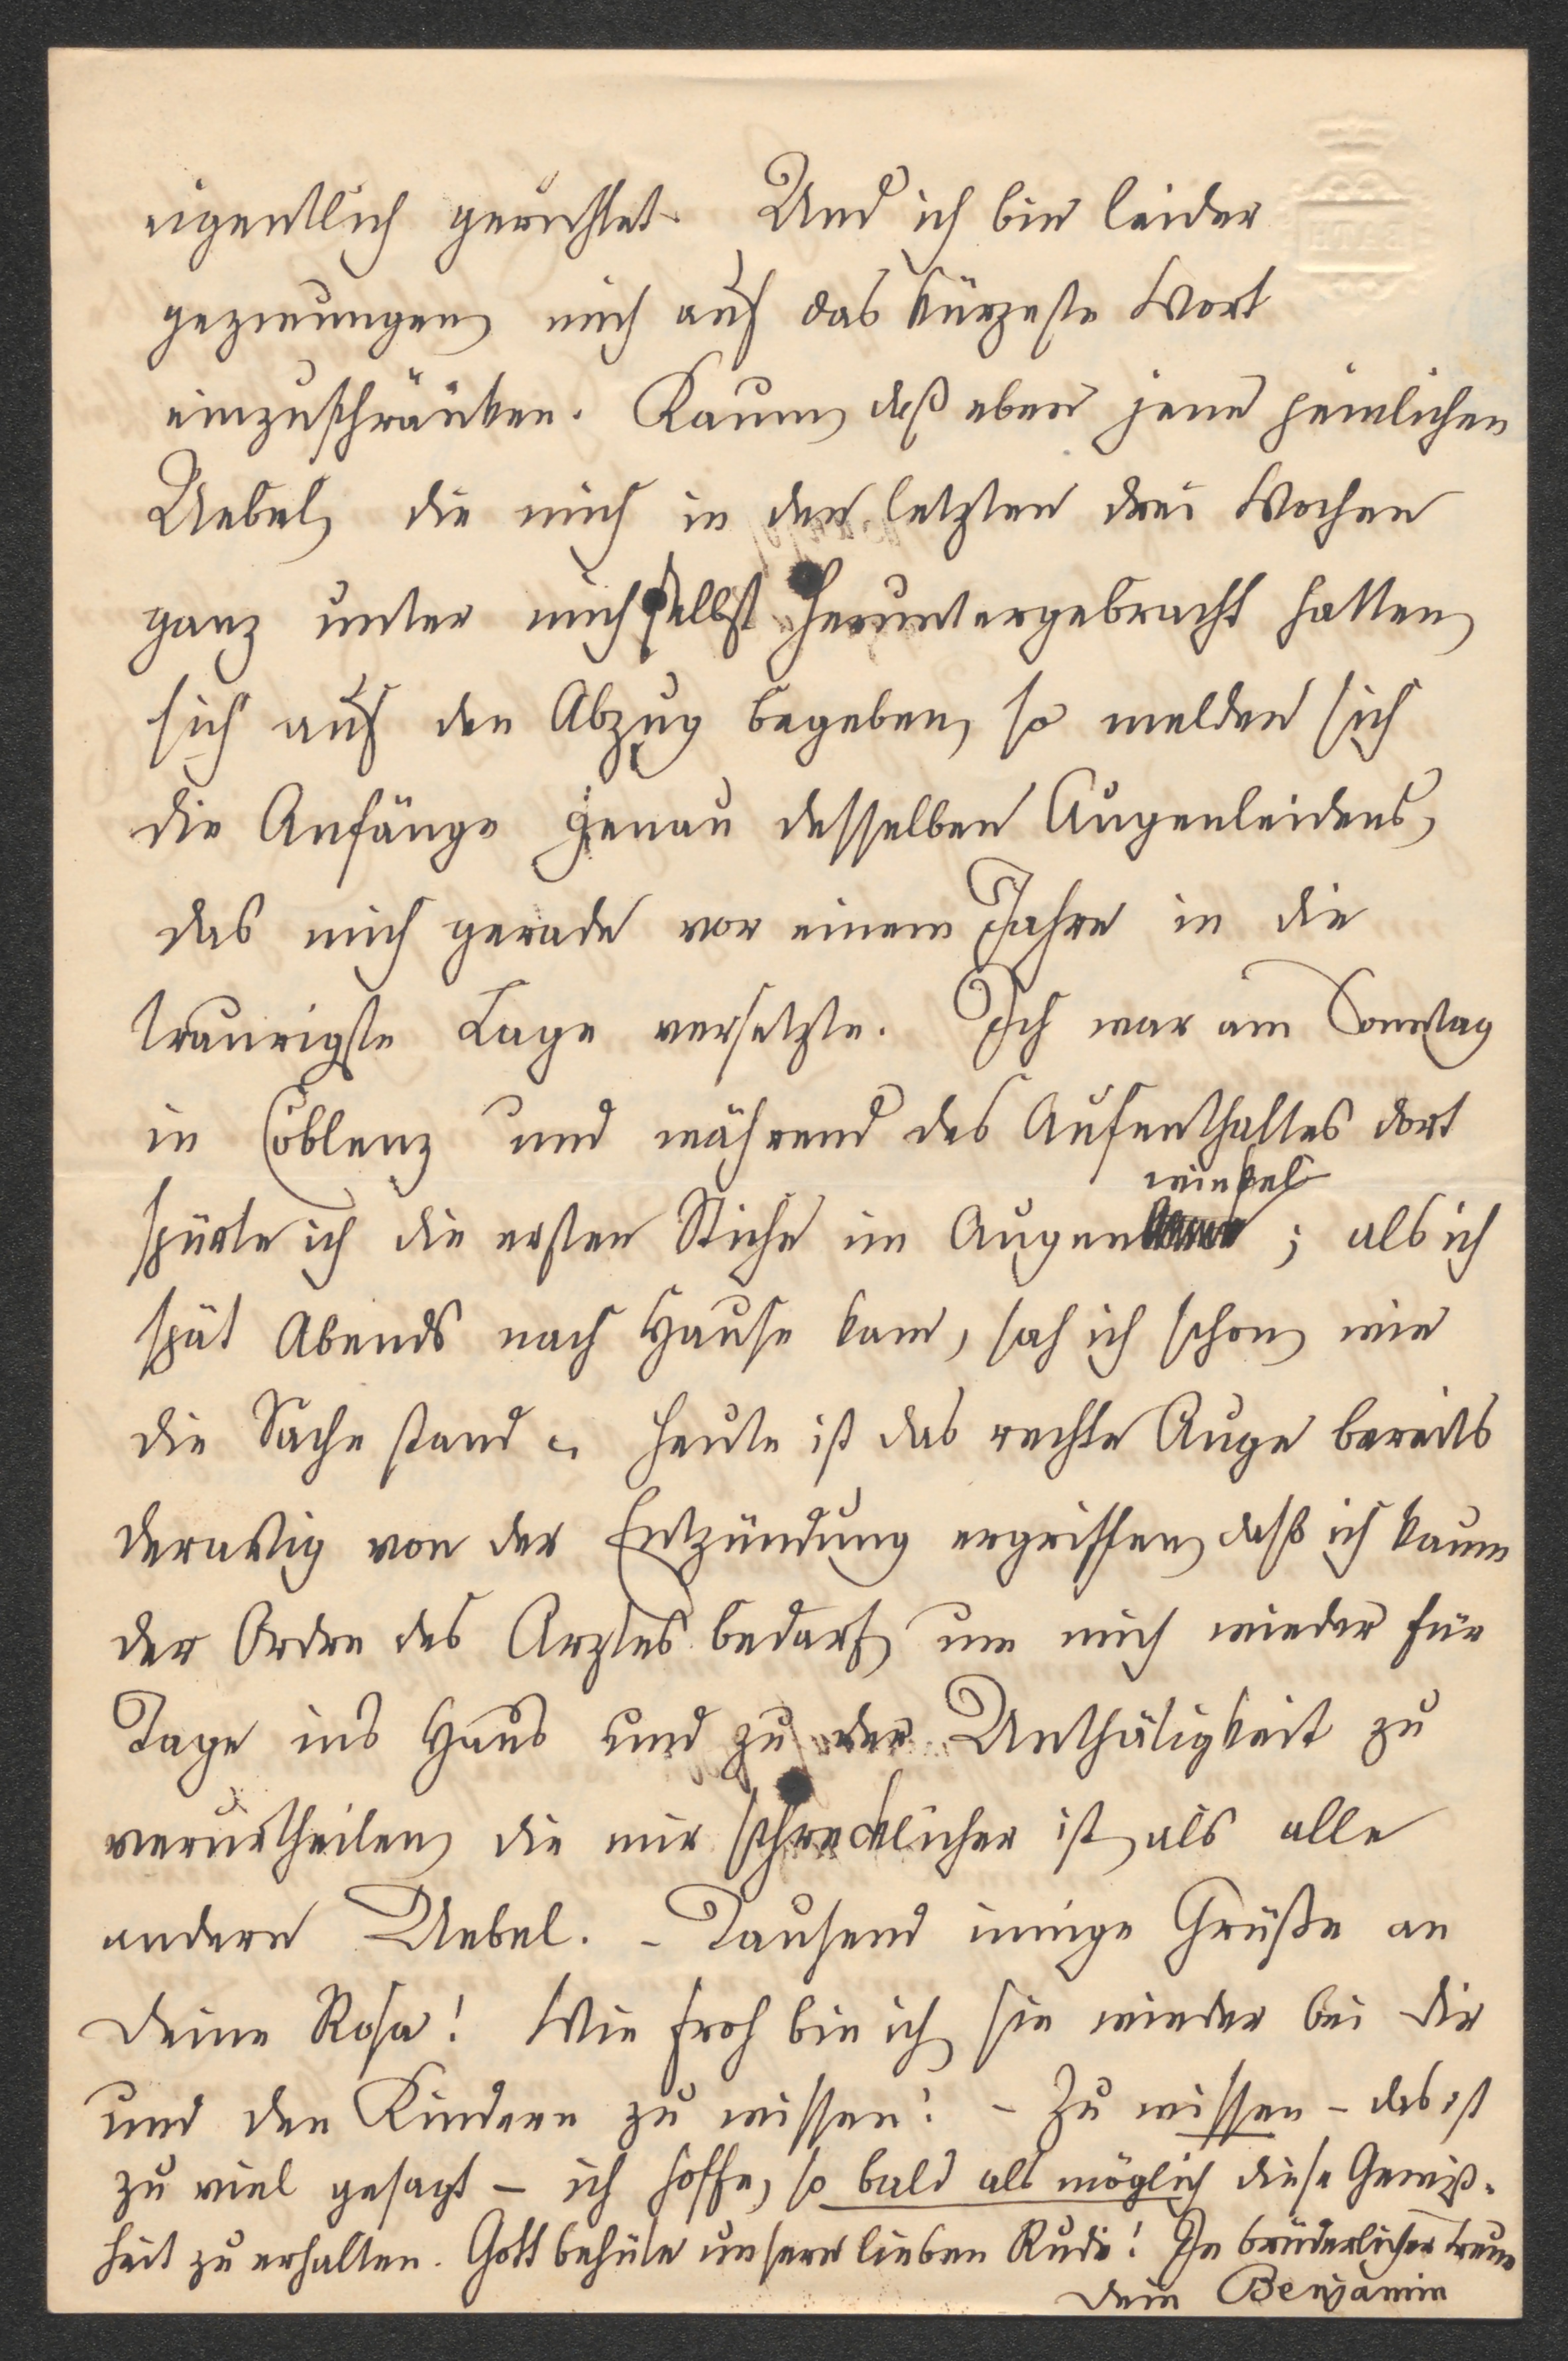 BATH
eigentlich gerichtet. Und ich bin leider
gezwungen mich auf das kürzeste Wort
einzuschränken. Kaum daß eben jene peinlichen
Uebel, die mich in den letzten drei Wochen
ganz unter mich selbst heruntergebracht hatten,
sich auf den Abzug begeben, so melden sich
die Anfänge genau desselben Augenleidens,
das mich gerade vor einem Jahre in die
traurigste Lage versetzte. Ich war am Sonntag
in Coblenz und während des Aufenthaltes dort
spürte ich die ersten Stiche im Augenwinkel; als ich
spät Abends nach Hause kam, sah ich schon wie
die Sache stand u. heute ist das rechte Auge bereits
derartig von der Entzündung ergriffen, daß ich kaum
der Ordre des Arztes bedarf, um mich wieder für
Tage ins Haus und zu der Unthätigkeit zu
verurtheilen, die mir schrecklicher ist, als alle
andern Uebel. - Tausend innige Grüße an
Deine Rosa! Wie froh bin ich, sie wieder bei Dir
und den Kindern zu wissen! - Zu wissen - das ist
zu viel gesagt - ich hoffe, so bald als möglich diese Gewiß-
heit zu erhalten. Gott behüte unsern lieben Rudi! In brüderlicher Treue
Dein Benjamin